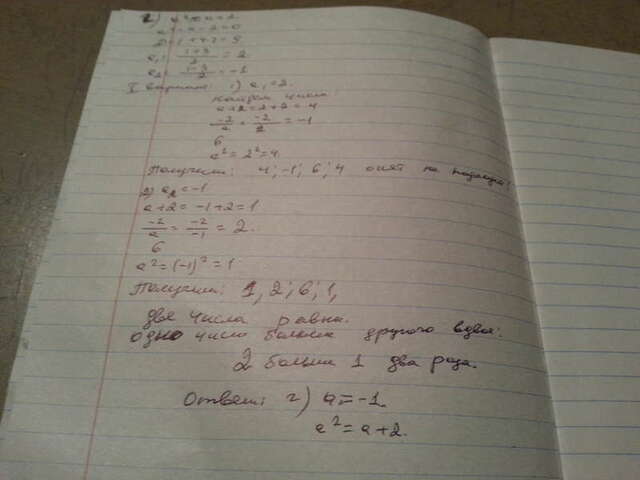 2) a² = a+2.
a²-a-2=0
D=1+4·2=9
a₁ = (1+3)/2 = 2
a₂ = (1-3)/2 = -1
I вариант: 1) a₁=2.
Найдём числа:
a+2=2+2=4
-2/a = -2/2 = -1
6
a²=2²=4
Получим: 4; -1; 6; 4 опят не подходит!
2) a₂=-1
a+2=-1+2=1
-2/a = -2/-1 = 2.
6
a²=(-1)²=1
Получим: 1, 2; 6; 1,
две числа равна.
одно число больше другого вдвое:
2 больше 1 два раза.
Ответ: 2) a=-1.
a²=a+2.